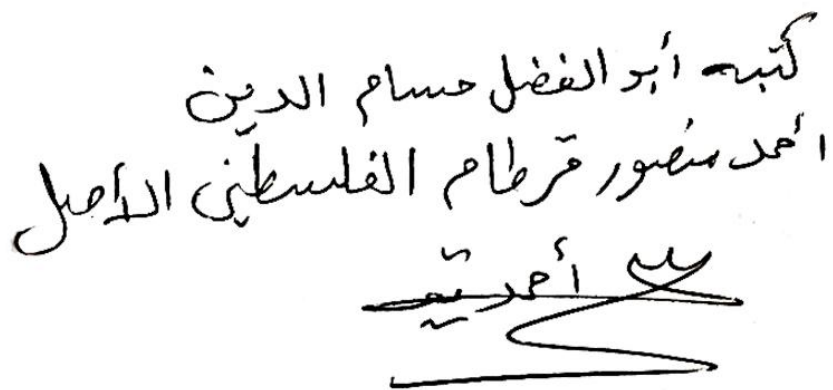 كتبه أبو الفضل حسام الدين
أحمد منصور قرطام الفلسطيني الأصل
أحمد